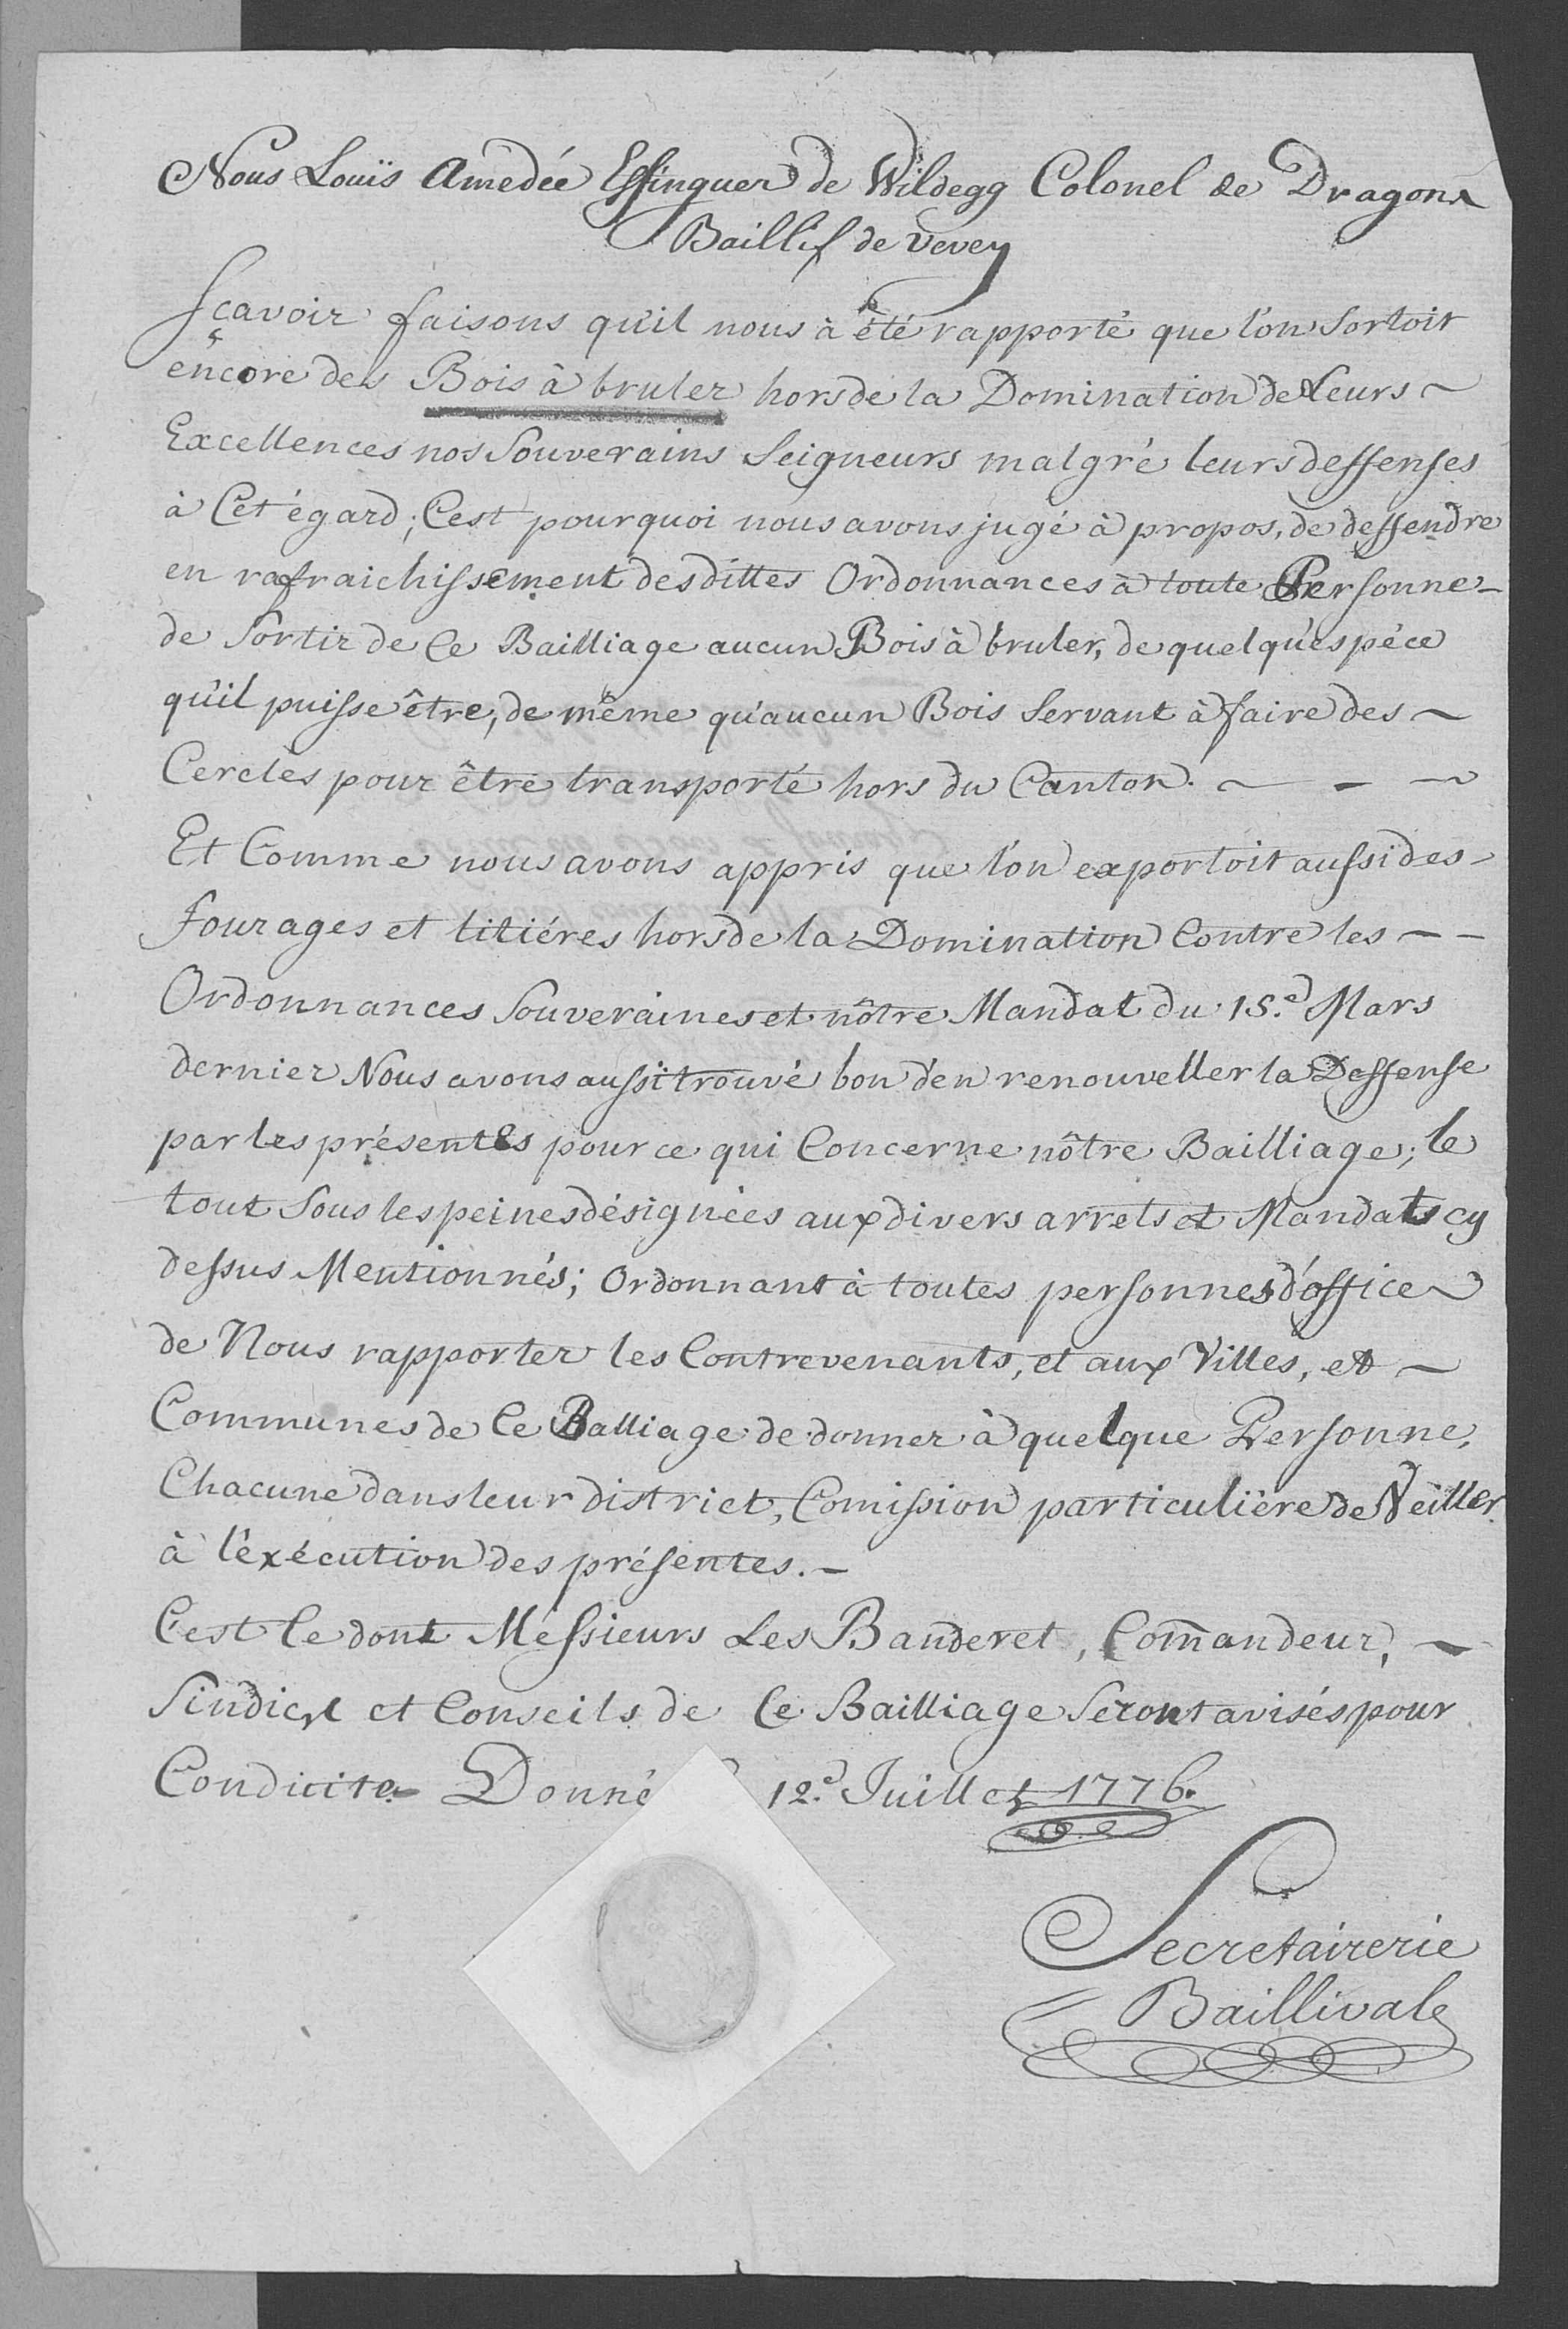 Nous Louïs Amedée Effinguer de Wildegg Colonel de Dragons
Baillif de Vevey
Sçavoir faisons qu'il nous à été rapporté que l'on Sortoit
encore des Bois à bruler hors de la Domination de Leurs ~
Excellences nos Souverains Seigneurs malgré leurs deffenses
à Cet égard; C'est pourquoi nous avons jugé à propos, de deffendre
en rafraichissement desdittes Ordonnances à toute Personne -
de Sortir de Ce Bailliage aucun Bois à bruler, de quelqu'espéce
qu'il puisse être, de même qu'aucun Bois Servant à faire des ~
Cercles pour être transporté hors du Canton. ~ - ~
Et Comme nous avons appris que l'on exportoit aussi des -
fourages et litiéres hors de la Domination Contre les - -
Ordonnances Souveraines et nôtre Mandat du 15.e Mars
dernier Nous avons aussi trouvé bon d'en renouveller la Deffense
par les présentes pour ce qui Concerne nôtre Bailliage; le
tout Sous les peines désignées aux divers arrets et Mandats cy
dessus Mentionnés; Ordonnant à toutes personnes d'office ~
de Nous rapporter les Contrevenants, et aux Villes, et ~
Communes de Ce Balliage de donner à quelque Personne,
Chacune dans leur district, Comission particulière de Veiller
à l'éxécution des présentes. -
C'est Ce dont Messieurs Les Banderet, Com̅andeur, ~
Sindics et Conseils de Ce Bailliage Seront avisés pour
Conduite Donné 12.e Juillet 1776.
Secretairerie
Baillivale